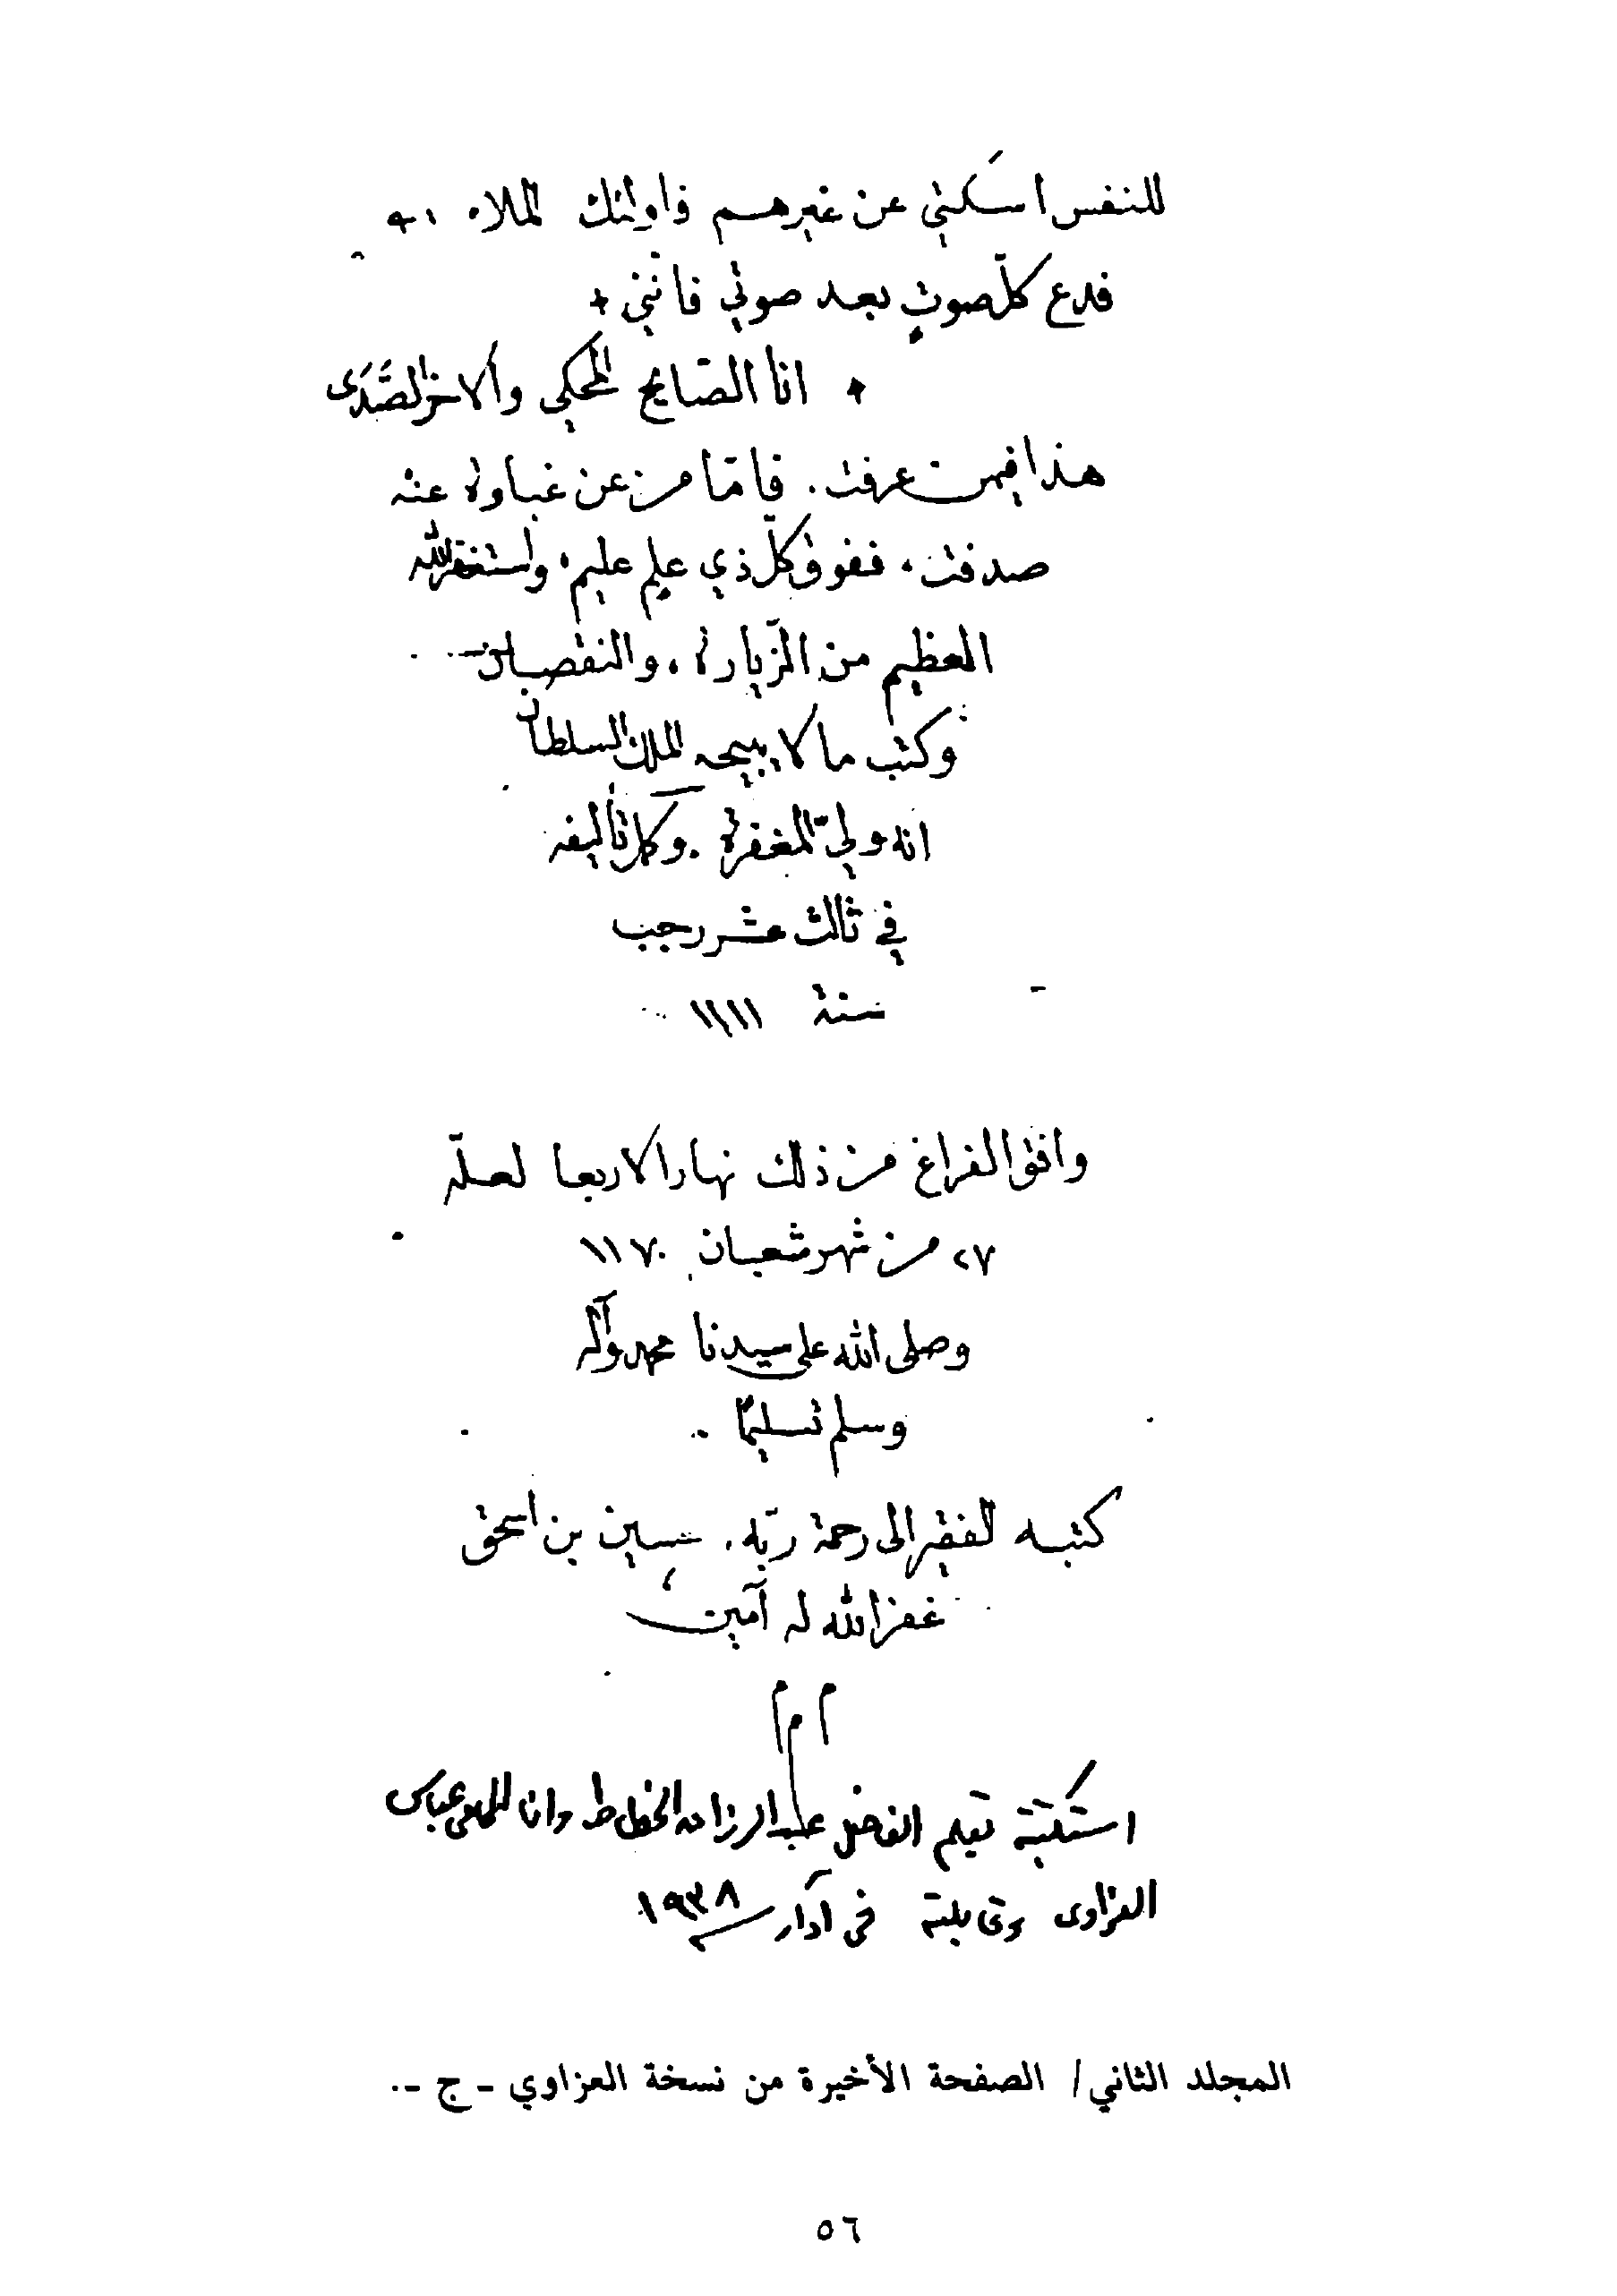 للنفس اسكني عن غيرهم فاولئك الملاء
فدع كلّ صوتٍ بعد صوتي فانّني
انا الصّايح المحكي والاخر الصَّدَى
هذا فيمن عرفت. فامّا من عن غباوة عنه
صدفت، ففوق كلّ ذي علم عليم، واستغفر الله
العظيم من الزّيارة، والنقصان
وكتب ما لا يبيحه الملك السلطان
انه وليّ المغفرة. وكان تاليفه
في ثالث عشر رجب
سنة ١١١١
وافق الفراغ من ذلك نهار الاربعا لعلّه
٢٧ من شهر شعبان ١١٧٠
وصلى الله على سيدنا محمد وآله
وسلم تسليمًا.
كتبه الفقير الى رحمة ربّه، حسين بن اسحق
غفر الله له آمين
م م م
استكتبته بقلم الفاضل عبد الرزاق الخطاط وانا المحامي عباس
العزاوى وقابلته في آذار سنة ١٩٣٨
المجلد الثاني/ الصفحة الأخيرة من نسخة العزاوي - ج -.
٥٦